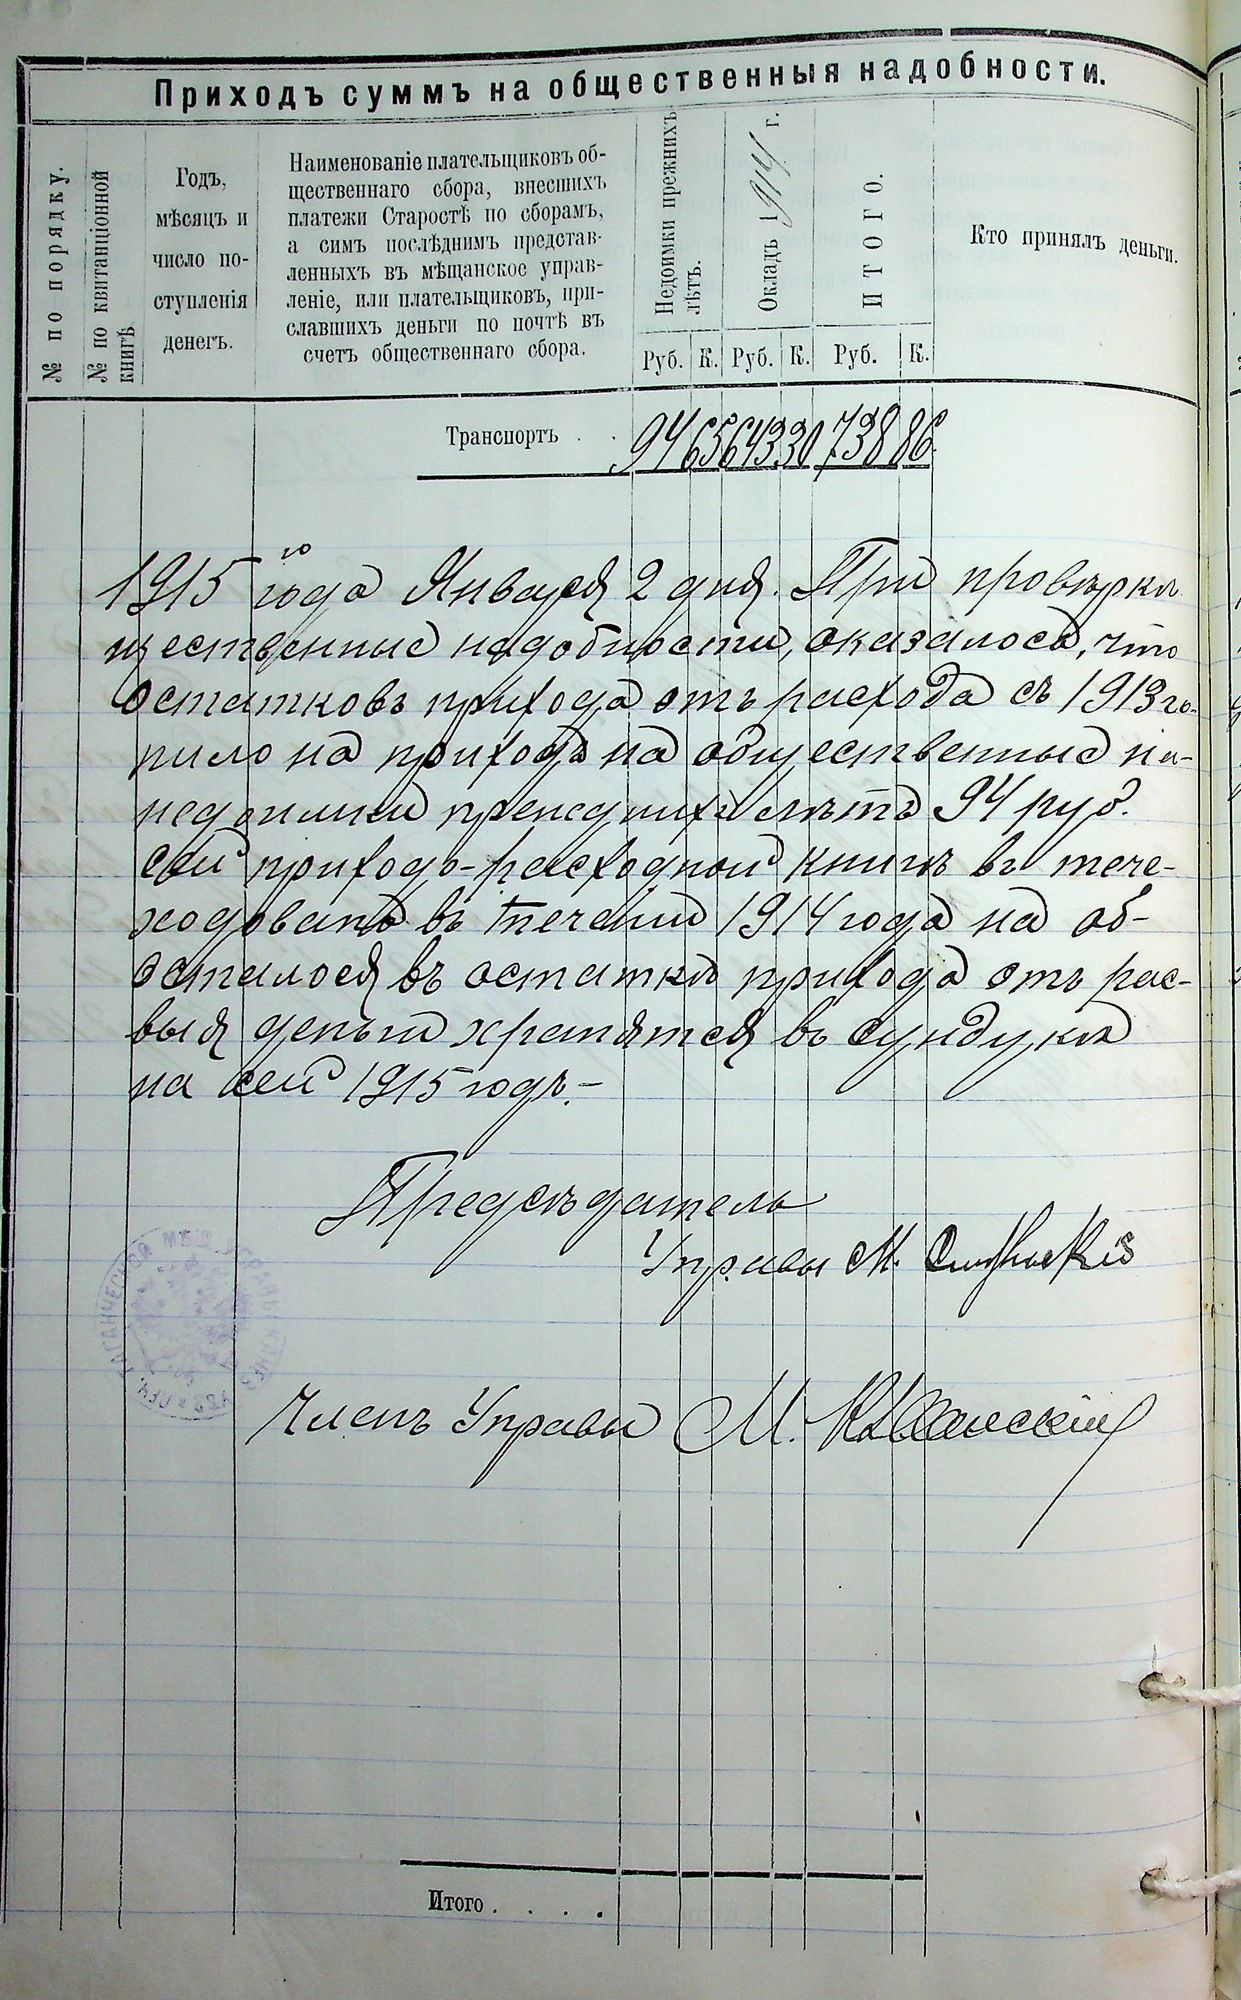 Приходъ суммъ на общественныя надобности.
№ по порядку.
№ по квитанціонной
книгѣ
Годъ,
мѣсяцъ и
число по-
ступленія
денегъ.
Наименованіе плательщиковъ об-
щественнаго сбора, внесшихъ
платежи Старостѣ по сборамъ,
а симъ послѣднимъ представ-
ленныхъ въ мѣщанское управ-
леніе, или плательщиковъ, при-
славшихъ деньги по почтѣ въ
счетъ общественнаго сбора.
Недоимки прежнихъ
лѣтъ.
Окладъ 1914 г.
ИТОГО.
Кто принялъ деньги.
Руб. К. Руб. К. Руб. К.
Транспортъ . . 94 65 643 30 738 86
1915го года Января 2 дня. При провѣркѣ
щественные надобности, оказалось, что
остатковъ прихода отъ расхода съ 1913 го-
пило на приходъ на общественные на-
недоимки прежнихъ лѣтъ 94 руб.
сей приходо-расходной книгѣ въ тече-
ходовано въ течении 1914 года на об-
осталося въ остаткѣ прихода отъ рас-
выя деньги хранятся въ сундукѣ
на сей 1915 годъ.-
Предсѣдатель
Управы М.
Членъ Управы М.
Итого . . . .